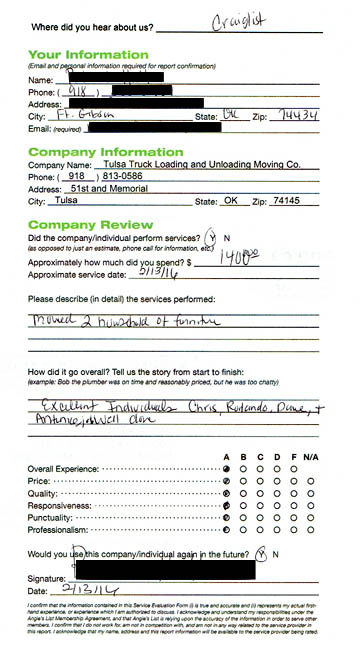 Where did you hear about us? Craiglist
Your Information
(Email and personal information required for report confirmation)
Name:
Phone: ( 918 )
Address:
City: Ft. Gibson State: OK Zip: 74434
Email: (required)
Company Information
Company Name: Tulsa Truck Loading and Unloading Moving Co.
Phone: ( 918 ) 813-0586
Address: 51st and Memorial
City: Tulsa State: OK Zip: 74145
Company Review
Did the company/individual perform services? Y N
(as opposed to just an estimate, phone call for information, etc.)
Approximately how much did you spend? $ 1400.00
Approximate service date: 2/13/16
Please describe (in detail) the services performed:
Moved 2 household of furniture
How did it go overall? Tell us the story from start to finish:
(example: Bob the plumber was on time and reasonably priced, but he was too chatty)
Excellent Individuals Chris, +
Well done
A B C D F N/A
Overall Experience:
Price:
Quality:
Responsiveness:
Punctuality:
Professionalism:
Would you use this company/individual again in the future? Y N
Signature:
Date: 2/13/16
I confirm that the information contained in this Service Evaluation Form (i) is true and accurate and (ii) represents my actual first-
hand experience, or experience which I am authorized to discuss. I acknowledge and understand my responsibilities under the
Angie's List Membership Agreement, and that Angie's List is relying upon the accuracy of the information in order to serve other
members. I confirm that I do not work for, am not in competition with, and am not in any way related to the service provider in
this report. I acknowledge that my name, address and this report information will be available to the service provider being rated.